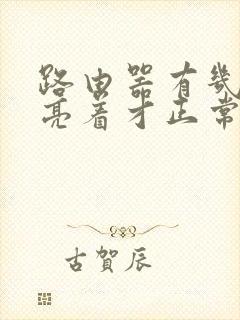 路由器有幾
亮着才正常
古賀辰